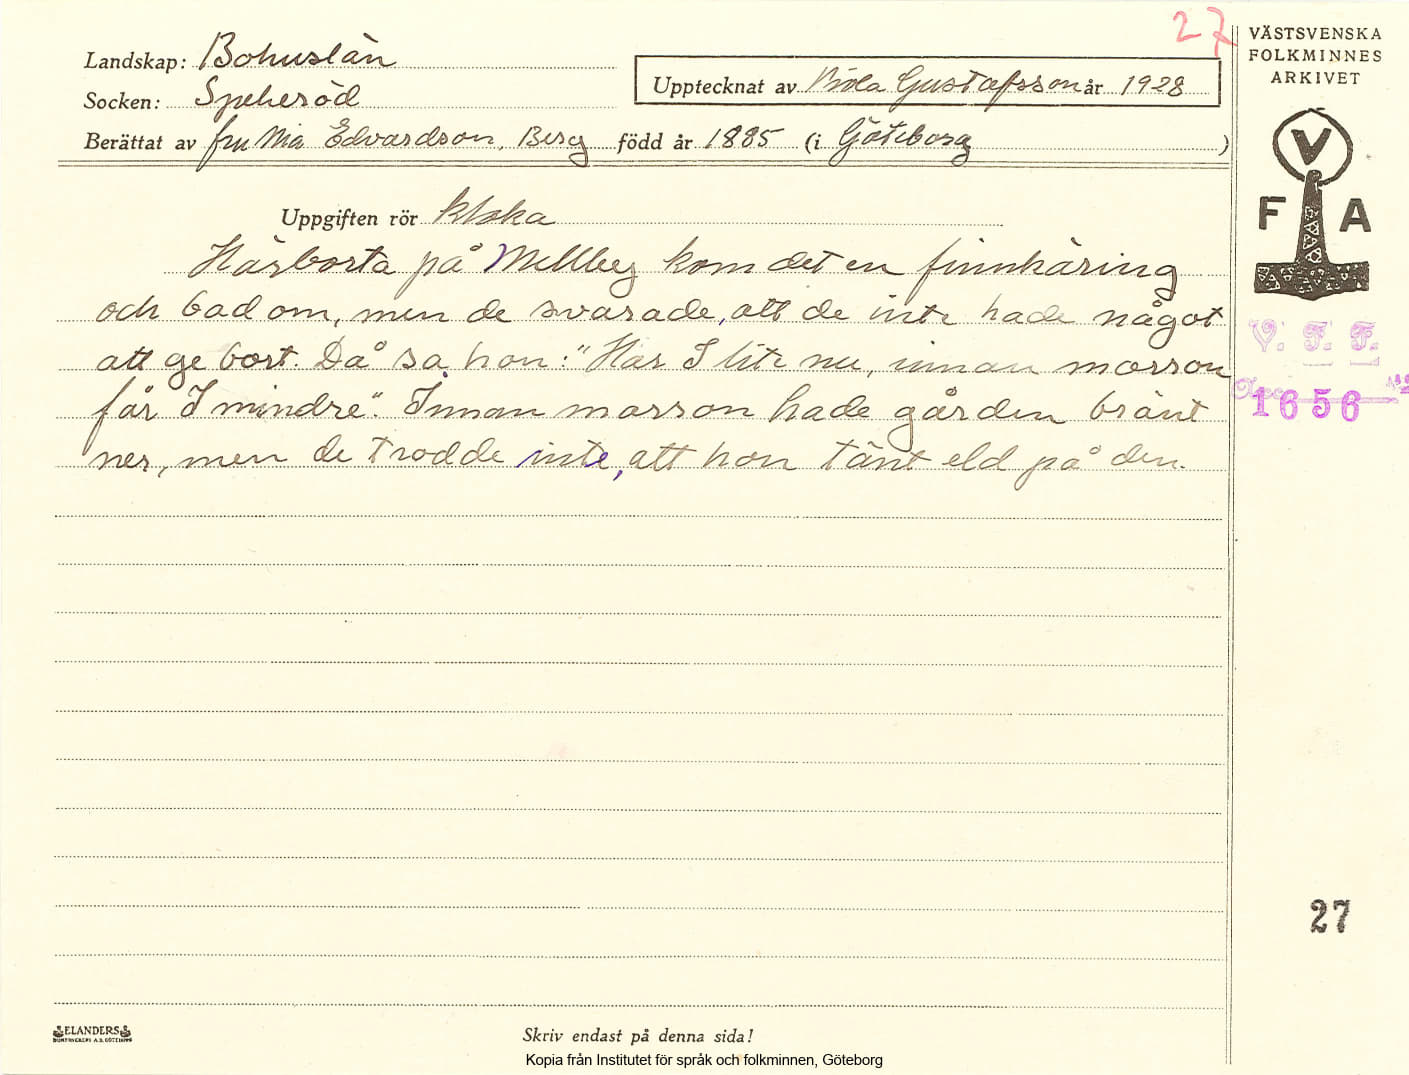 27
VÄSTSVENSKA
FOLKMINNES
ARKIVET
Landskap: Bohuslän
Socken: Spekeröd
Upptecknat av Viola Gustafsson år 1928
Berättat av fru Mia Edvardson, Berg född år 1885 (i Göteborg )
V
F A
Uppgiften rör kloka
Härborta på Mellby kom det en finnkäring
och bad om, men de svarade, att de inte hade något
att ge bort. Då sa hon: "Har I lite nu, innan morson
får I mindre". Innan morson hade gården bränt
ner, men de trodde inte, att hon tänt eld på den.
V. F. F.
1656
27
ELANDERS
Skriv endast på denna sida!
Kopia från Institutet för språk och folkminnen, Göteborg